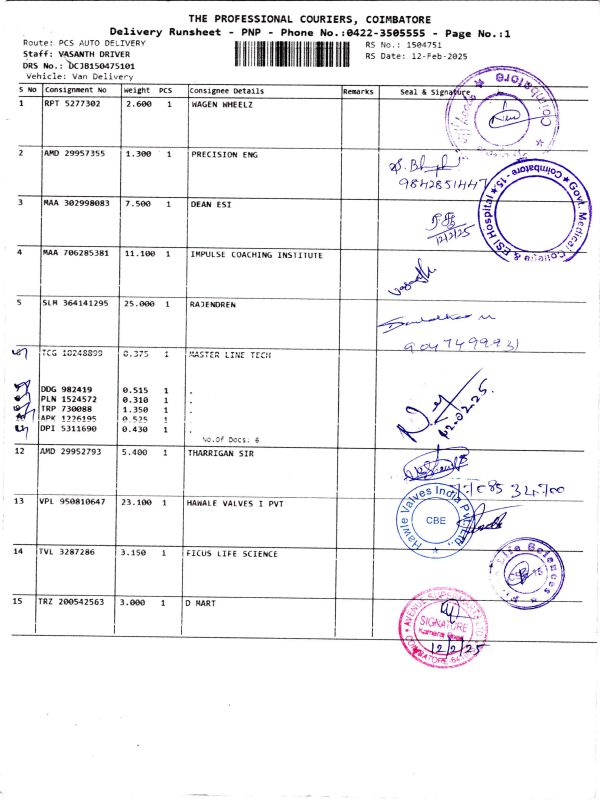 THE PROFESSIONAL COURIERS, COIMBATORE
Delivery Runsheet - PNP - Phone No.:0422-3505555 - Page No.:1
Route: PCS AUTO DELIVERY RS No.: 1504751
Staff: VASANTH DRIVER RS Date: 12-Feb-2025
DRS No.: DCJB150475101
Vehicle: Van Delivery
S No Consignment No Weight PCS Consignee Details Remarks Seal & Signature
1 RPT 5277302 2.600 1 WAGEN WHEELZ
Coimbatore
2 AMD 29957355 1.300 1 PRECISION ENG
9842851447
Govt. Medical College & ESI Hospital * Coimbatore - 15 *
3 MAA 302998083 7.500 1 DEAN ESI
12/2/25
4 MAA 706285381 11.100 1 IMPULSE COACHING INSTITUTE
5 SLM 364141295 25.000 1 RAJENDREN
TCG 10248899 0.375 1 MASTER LINE TECH
DDG 982419 0.515 1 .
PLN 1524572 0.310 1 .
TRP 730088 1.350 1 .
APK 1226195 0.525 1 .
DPI 5311690 0.430 1 .
No.Of Docs: 6
12.02.25.
12 AMD 29952793 5.400 1 THARRIGAN SIR
13 VPL 950810647 23.100 1 HAWALE VALVES I PVT
Hawle Valves India Pvt Ltd
CBE
14 TVL 3287286 3.150 1 FICUS LIFE SCIENCE
Life Sciences
15 TRZ 200542563 3.000 1 D MART
SIGNATURE
12/2/25